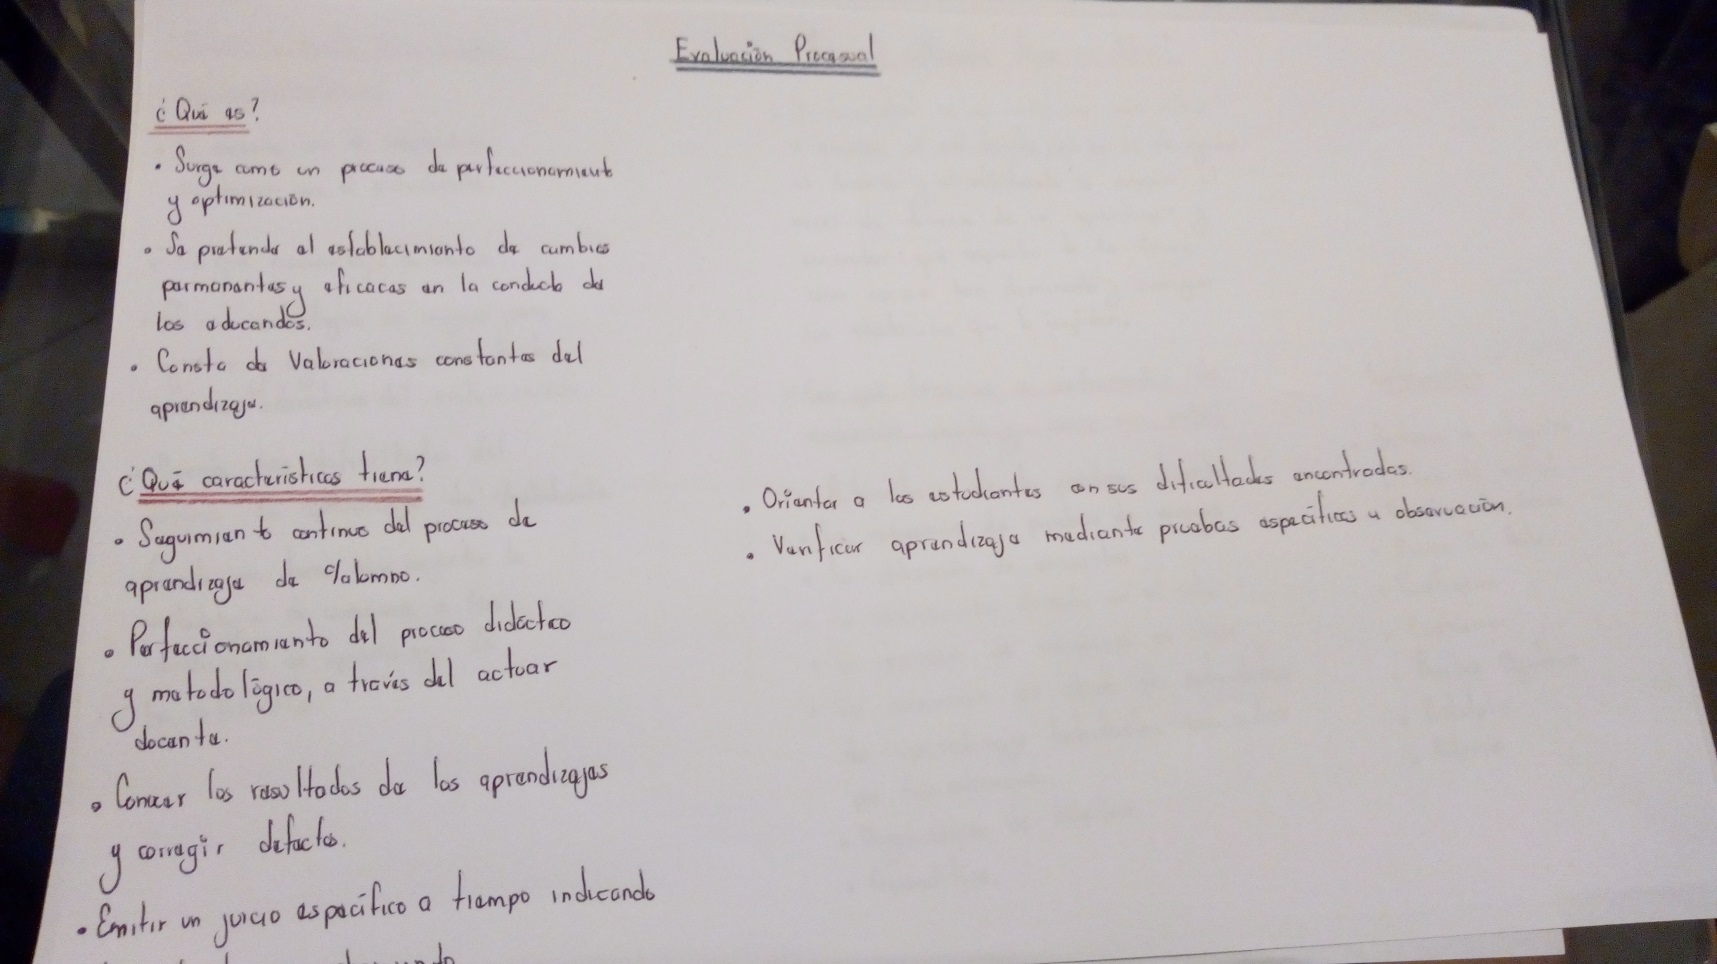 Evaluación Procesual
¿Qué es?
• Surge como un proceso de perfeccionamiento
y optimización.
• Se pretende el establecimiento de cambios
permanentes y eficaces en la conducta de
los educandos.
• Consta de Valoraciones constantes del
aprendizaje.
¿Qué características tiene?
• Seguimiento continuo del proceso de
aprendizaje de c/alumno.
• Perfeccionamiento del proceso didáctico
y metodológico, a través del actuar
docente.
• Conocer los resultados de los aprendizajes
y corregir defectos.
• Emitir un juicio específico a tiempo indicando
• Orientar a los estudiantes en sus dificultades encontradas.
• Verificar aprendizaje mediante pruebas específicas u observación.